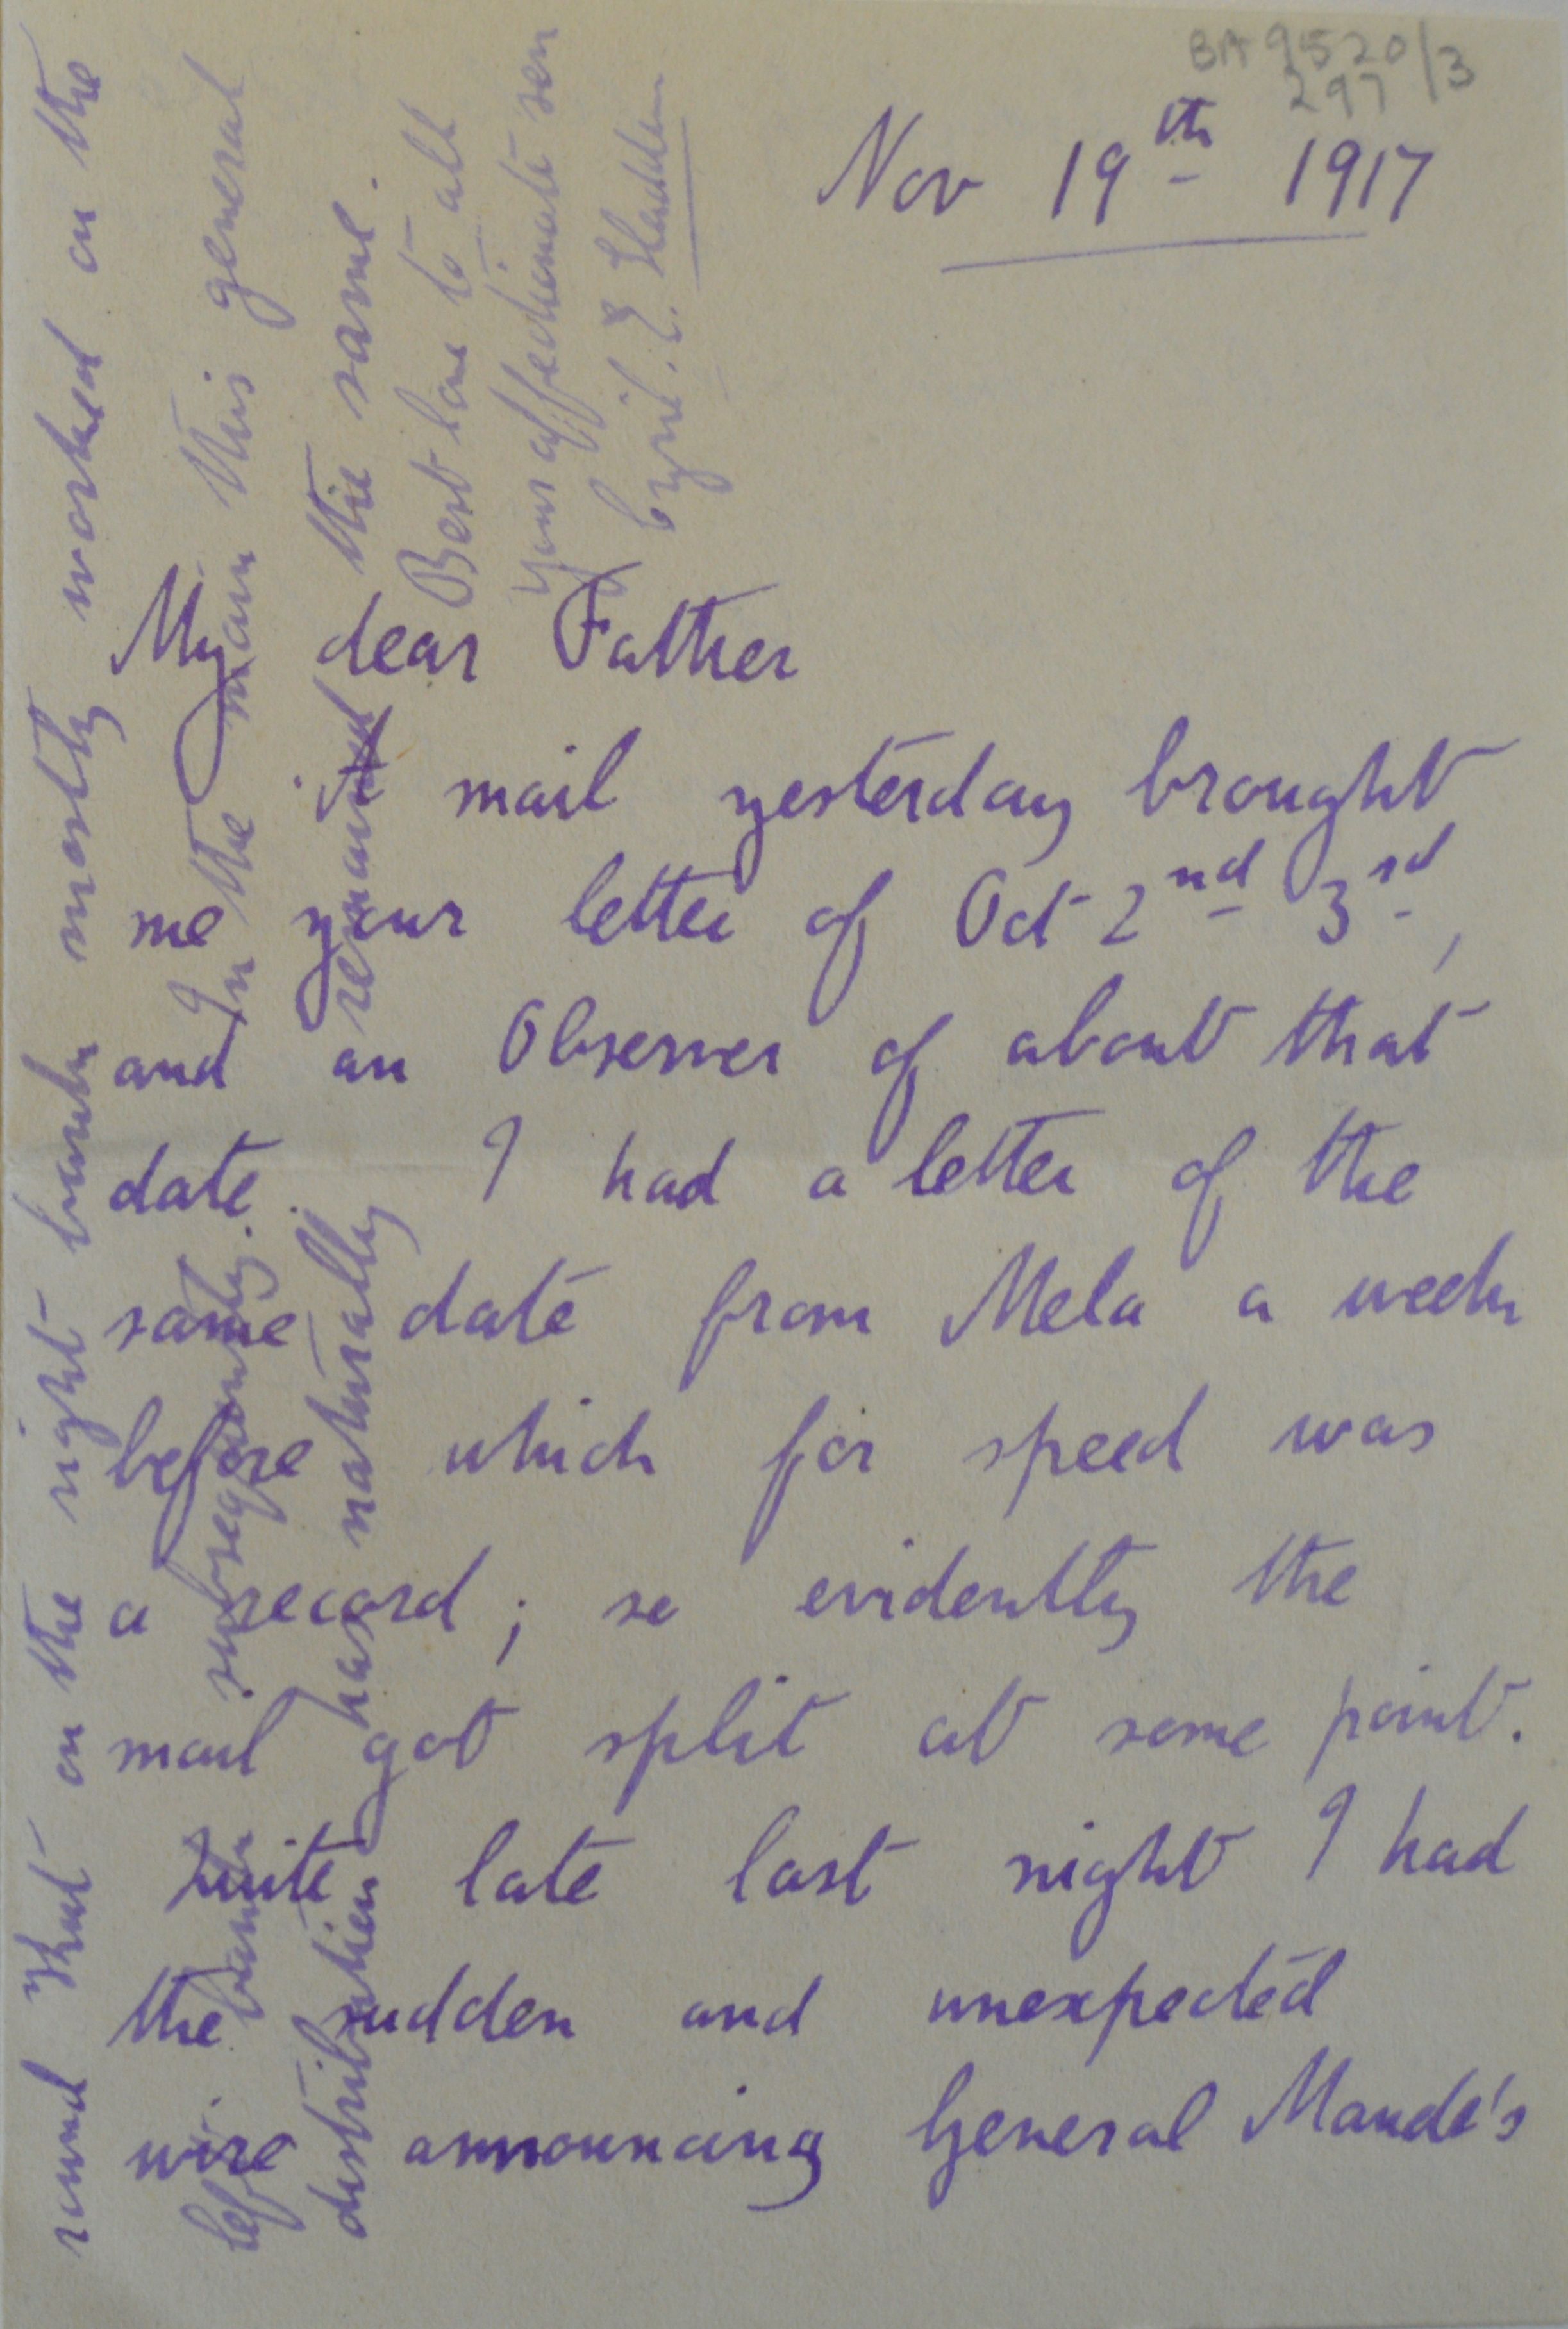 BA 9520/3
297
Nov 19th 1917
My dear Father
A mail yesterday brought
me your letter of Oct 2nd 3rd,
and an Observer of about that
date. I had a letter of the
same date from Mela a week
before which for speed was
a record; so evidently the
mail got split at some point.
Quite late last night I had
the sudden and unexpected
wire announcing General Maude's
round Kut on the right bank mostly worked on the
left bank subsequently. In the main this general
distribution has naturally remained the same.
Best love to all
Your affectionate son
Cyril. E. Sladden